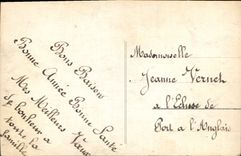 Bons Baisers
Bonne Année Bonne Santé
Mes Meilleurs
de bonheur a
toute la
famille
Mademoiselle
Jeanne Vernet
a l'Ecluse de
Port a l'Anglais